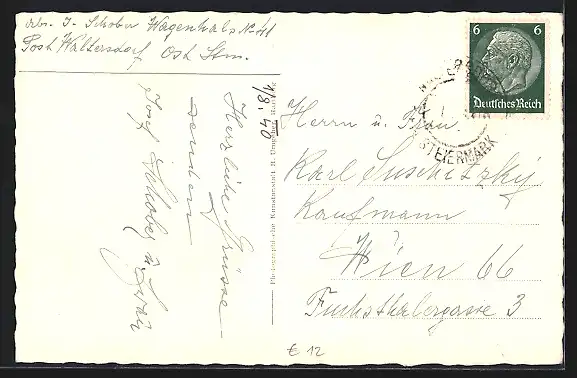 Abs. J. Schober Wagenhals No 41
Post Waltersdorf Ost Stm.
6 6
Deutsches Reich
STEIERMARK
1/8. 40
Herzliche Grüsse
senden
Josef Schober u. Frau
Photographische Kunstanstalt
Herrn u. Frau
Karl Suschitzky
Kaufmann
Wien 66
Fuchsthalergasse 3
€ 12